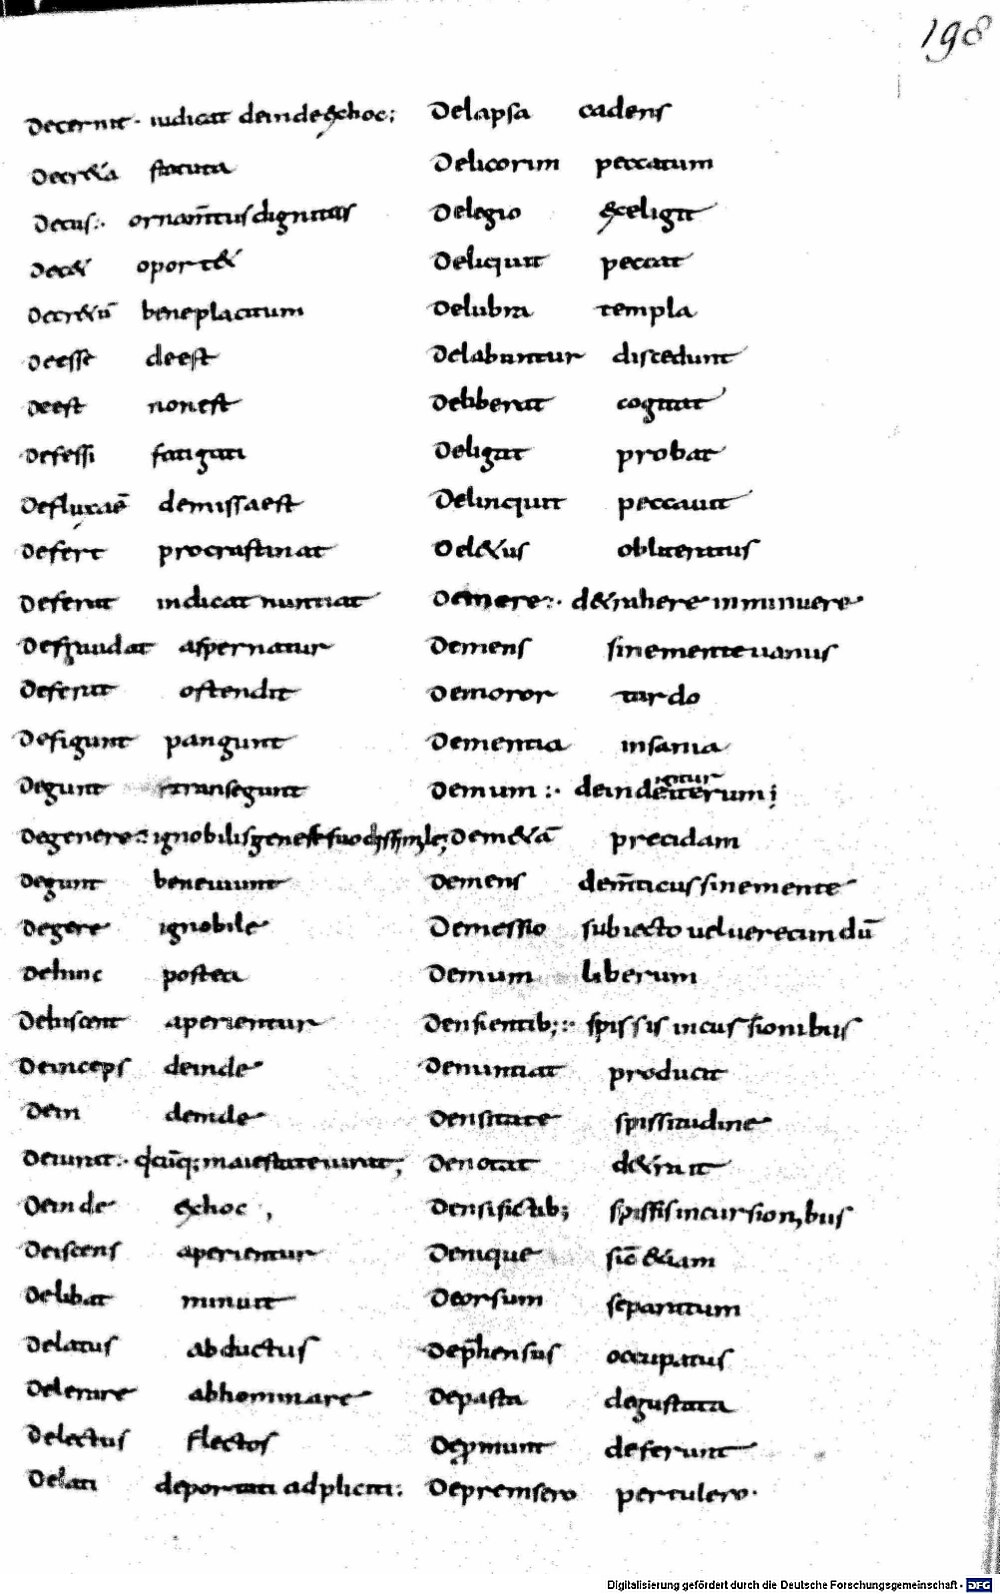 198
Decernit · iudicat deinde exhoc;
Decr&a statuta
Decus:· ornam̄tus dignitas
Dec& oport&
Decr&ū beneplacitum
Deesse deest
Deest non est
Defessi fatigati
Defluxaē demissa est
Defert procrastinat
Deferit indicat nuntiat
Defraudat aspernatur
Deferit ostendit
Defigunt pangunt
Degunt transegunt
Degenero:· ignobilis genest suo dissimle;
Degunt bene uiunt
Degere ignobile
Dehinc postea
Dehiscent aperientur
Deinceps deinde
Dein deinde
Deiurat:· maiestate iurat,
Deinde exhoc,
Deiscens aperientur
Delibat minuit
Delatus abductus
Delerare abhominare
Delectus flectos
Delati deportati adpliciti:
Delapsa cadens
Delicorim peccatum
Delegio exceligit
Deliquit peccat
Delubra templa
Delabuntur discedunt
Deliberat cogitat
Deligat probat
Delinquit peccauit
Del&us obliteratus
Demere:· d&rahere inminuere
Demens sine mente uanus
Demoror tardo
Dementia insania
Demum:· deinde iterum; igitur
Dem&ā precidam
Demens dem̄ticus sine mente
Demessio subiecto uel uerecundū
Demum liberum
Densientib;:· spissis incussionibus
Denuntiat producit
Densitate spissitudine
Denotat d&rait
Densisictib; spissis incursionibus
Denique sic̄ &iam
Deorsum separatum
Dep̄hensus occupatus
Depasta degustata
Depmunt deferunt
Depremsero pertulero·
Digitalisierung gefördert durch die Deutsche Forschungsgemeinschaft - DFG